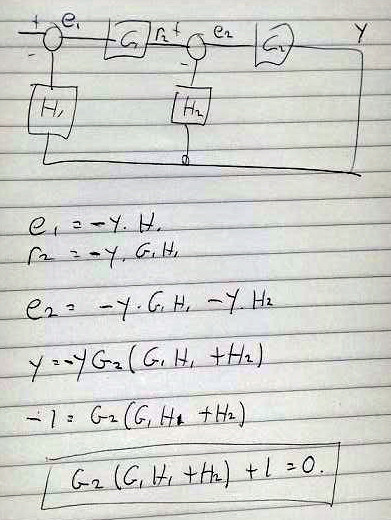 + e₁ G₁ r₂ + e₂ G₂ Y
- -
H₁ H₂
e₁ = -Y. H₁
r₂ = -Y. G₁ H₁
e₂ = -Y. G₁ H₁ - Y. H₂
Y = -Y G₂ (G₁ H₁ + H₂)
-1 = G₂ (G₁ H₁ + H₂)
G₂ (G₁ H₁ + H₂) + 1 = 0.